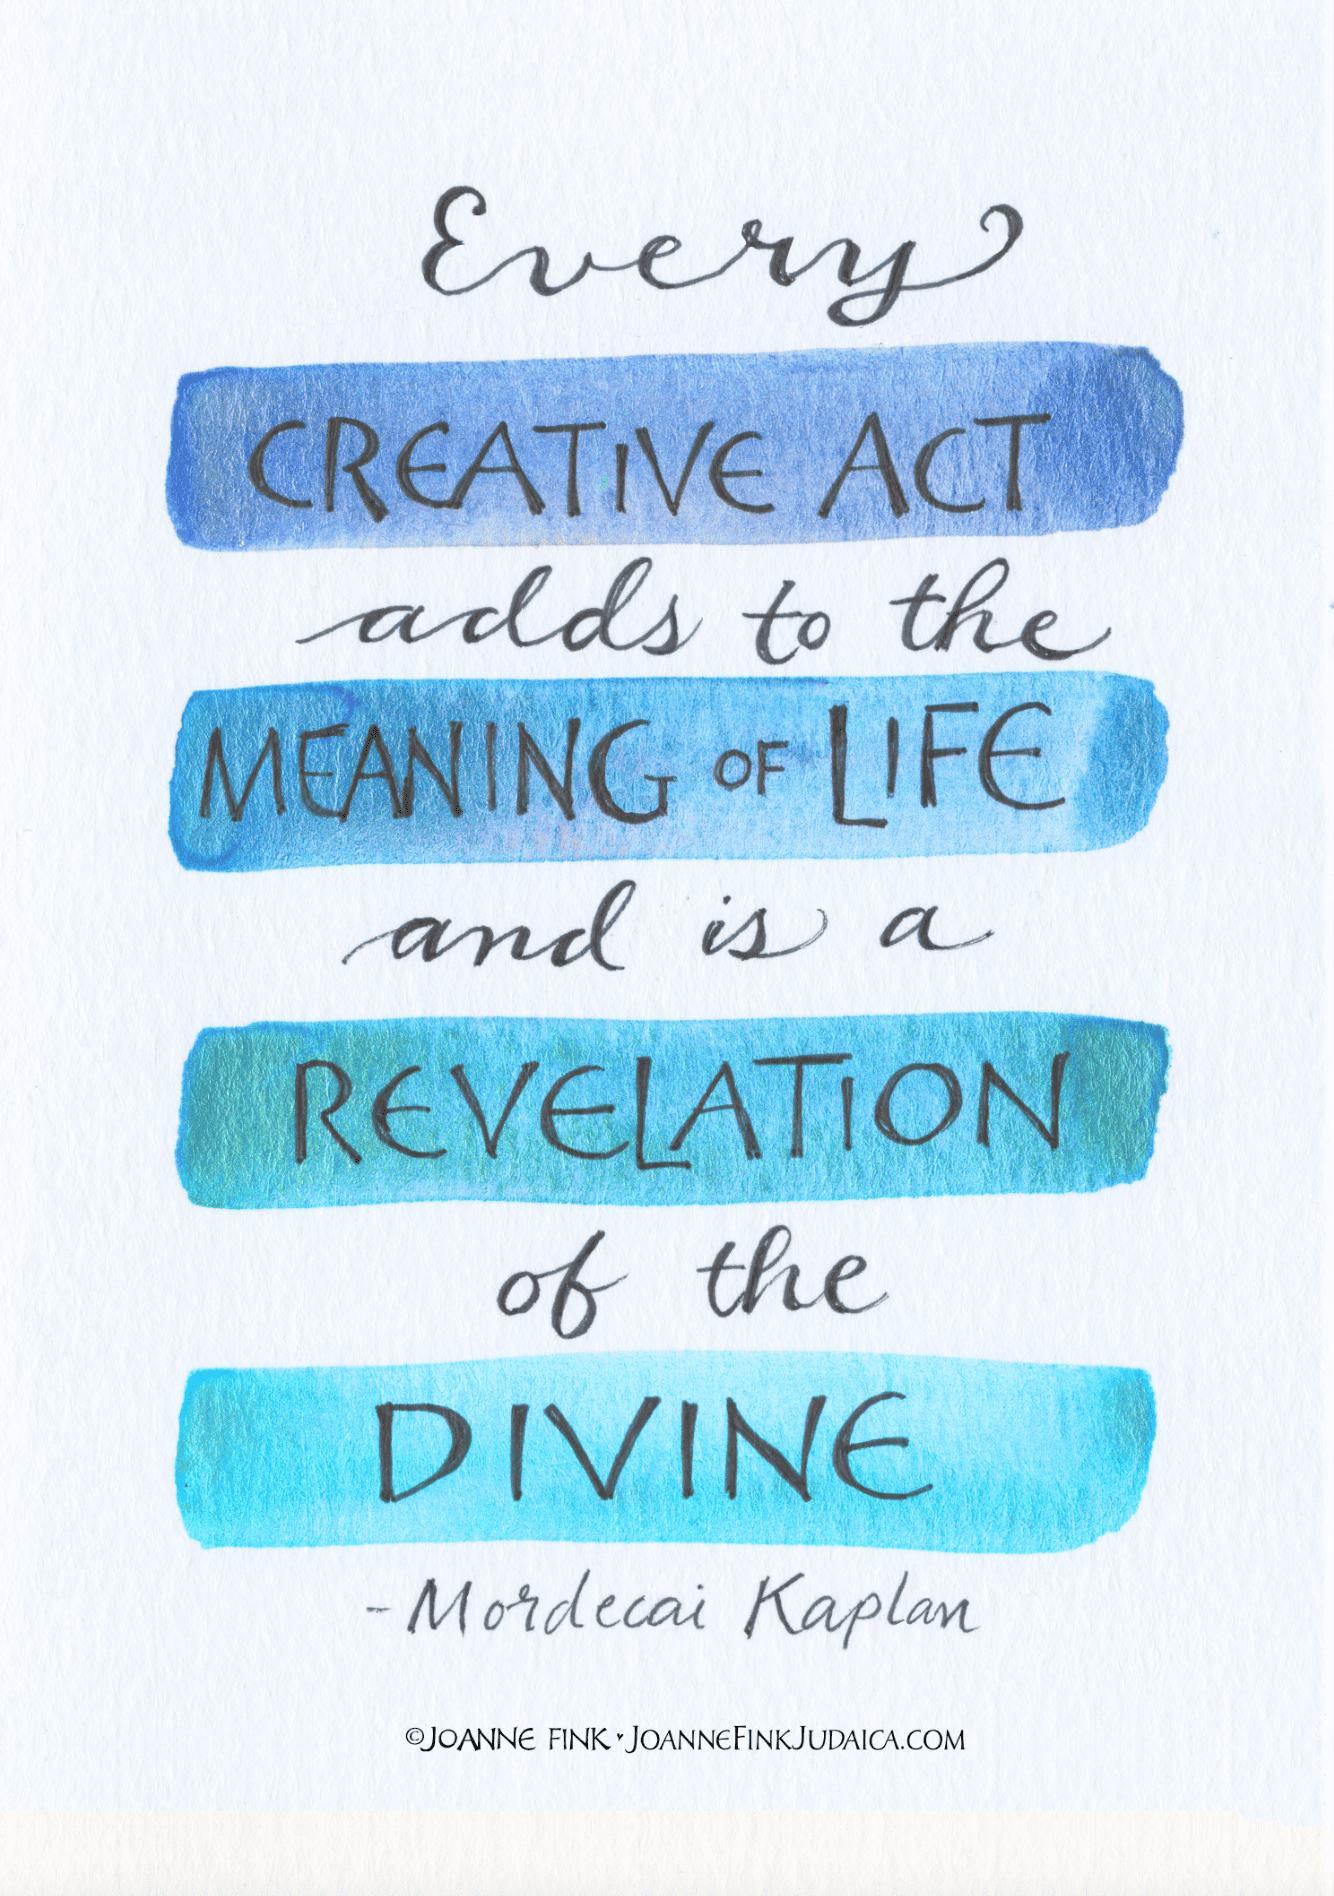 Every
CREATIVE ACT
adds to the
MEANING OF LIFE
and is a
REVELATION
of the
DIVINE
- Mordecai Kaplan
©JOANNE FINK ♥ JOANNEFINKJUDAICA.COM